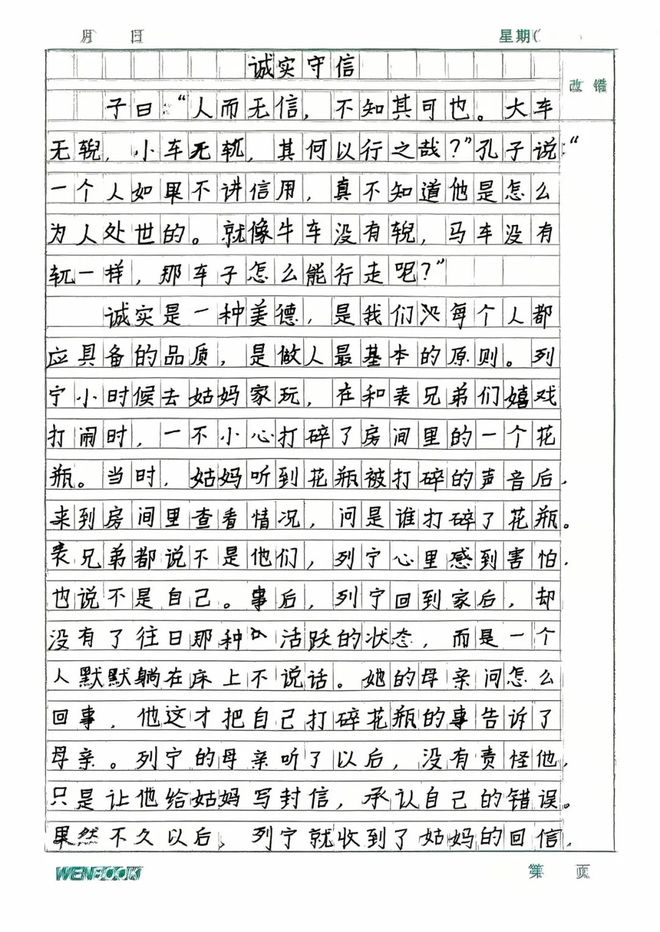 月 日 星期(
改错
诚实守信
子曰:“人而无信,不知其可也。大车
无輗,小车无軏,其何以行之哉?”孔子说:“
一个人如果不讲信用,真不知道他是怎么
为人处世的。就像牛车没有輗,马车没有
軏一样,那车子怎么能行走呢?”
诚实是一种美德,是我们没每个人都
应具备的品质,是做人最基本的原则。列
宁小时候去姑妈家玩,在和表兄弟们嬉戏
打闹时,一不小心打碎了房间里的一个花
瓶。当时,姑妈听到花瓶被打碎的声音后,
来到房间里查看情况,问是谁打碎了花瓶。
表兄弟都说不是他们,列宁心里感到害怕,
也说不是自己。事后,列宁回到家后,却
没有了往日那种活跃的状态,而是一个
人默默躺在床上不说话。她的母亲问怎么
回事,他这才把自己打碎花瓶的事告诉了
母亲。列宁的母亲听了以后,没有责怪他,
只是让他给姑妈写封信,承认自己的错误。
果然不久以后,列宁就收到了姑妈的回信,
WENBOOK 第 页